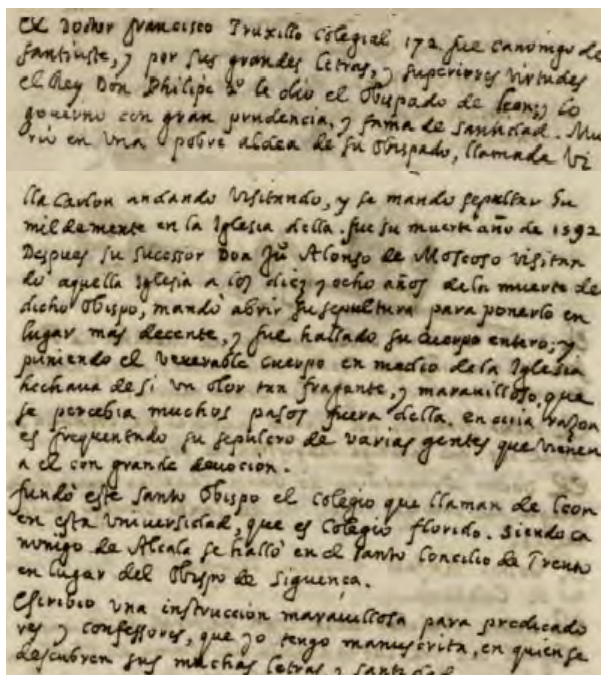 El Doctor francisco Truxillo Colegial 172. fue canonigo de
santiuste, y por sus grandes letras, y superiores virtudes
el Rey Don Philipe 2º le dio el Obispado de leon; y lo
governo con gran prudencia, y fama de santidad. Mu
rio en una pobre aldea de su Obispado, llamada Vi
lla Carlon andando visitando, y se mando sepultar hu
mildemente en la Iglesia della. fue su muerte año de 1592
Despues su sucessor Don Ju Alonso de Moscoso visitan
do aquella Iglesia a los diez y ocho años de la muerte de
dicho Obispo, mandò abrir su sepultura para ponerlo en
lugar más decente, y fue hallado su cuerpo entero; y
puniendo el venerable cuerpo en medio de la Iglesia
hechava de si un olor tan fragante, y maravilloso, que
se percebia muchos pasos fuera della. en cuia razon
es frequentado su sepulcro de varias gentes que vienen
a el con grande devocion.
fundò este santo Obispo el Colegio que llaman de leon
en esta Universidad, que es Colegio florido. siendo ca
nonigo de Alcala se hallò en el santo Concilio de Trento
en lugar del Obispo de Siguença.
Escribio una instruccion maravillosa para predicado
res y confessores, que yo tengo manuscrita, en quien se
descubren sus muchas letras y santidad